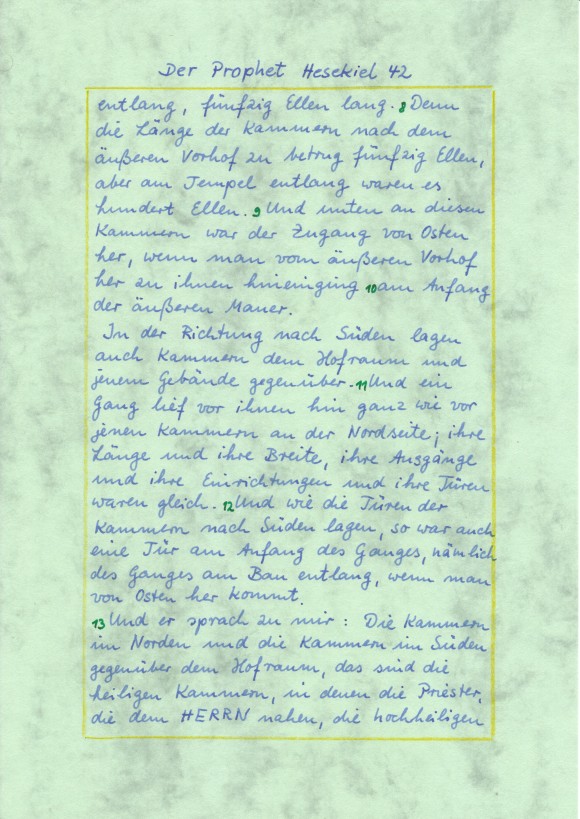 Der Prophet Hesekiel 42
entlang, fünfzig Ellen lang. 8 Denn
die Länge der Kammern nach dem
äußeren Vorhof zu betrug fünfzig Ellen,
aber am Tempel entlang waren es
hundert Ellen. 9 Und unten an diesen
Kammern war der Zugang von Osten
her, wenn man vom äußeren Vorhof
her zu ihnen hineinging 10 am Anfang
der äußeren Mauer.
In der Richtung nach Süden lagen
auch Kammern dem Hofraum und
jenem Gebäude gegenüber. 11 Und ein
Gang lief vor ihnen hin ganz wie vor
jenen Kammern an der Nordseite; ihre
Länge und ihre Breite, ihre Ausgänge
und ihre Einrichtungen und ihre Türen
waren gleich. 12 Und wie die Türen der
Kammern nach Süden lagen, so war auch
eine Tür am Anfang des Ganges, nämlich
des Ganges am Bau entlang, wenn man
von Osten her kommt.
13 Und er sprach zu mir: Die Kammern
im Norden und die Kammern im Süden
gegenüber dem Hofraum, das sind die
heiligen Kammern, in denen die Priester,
die dem HERRN nahen, die hochheiligen